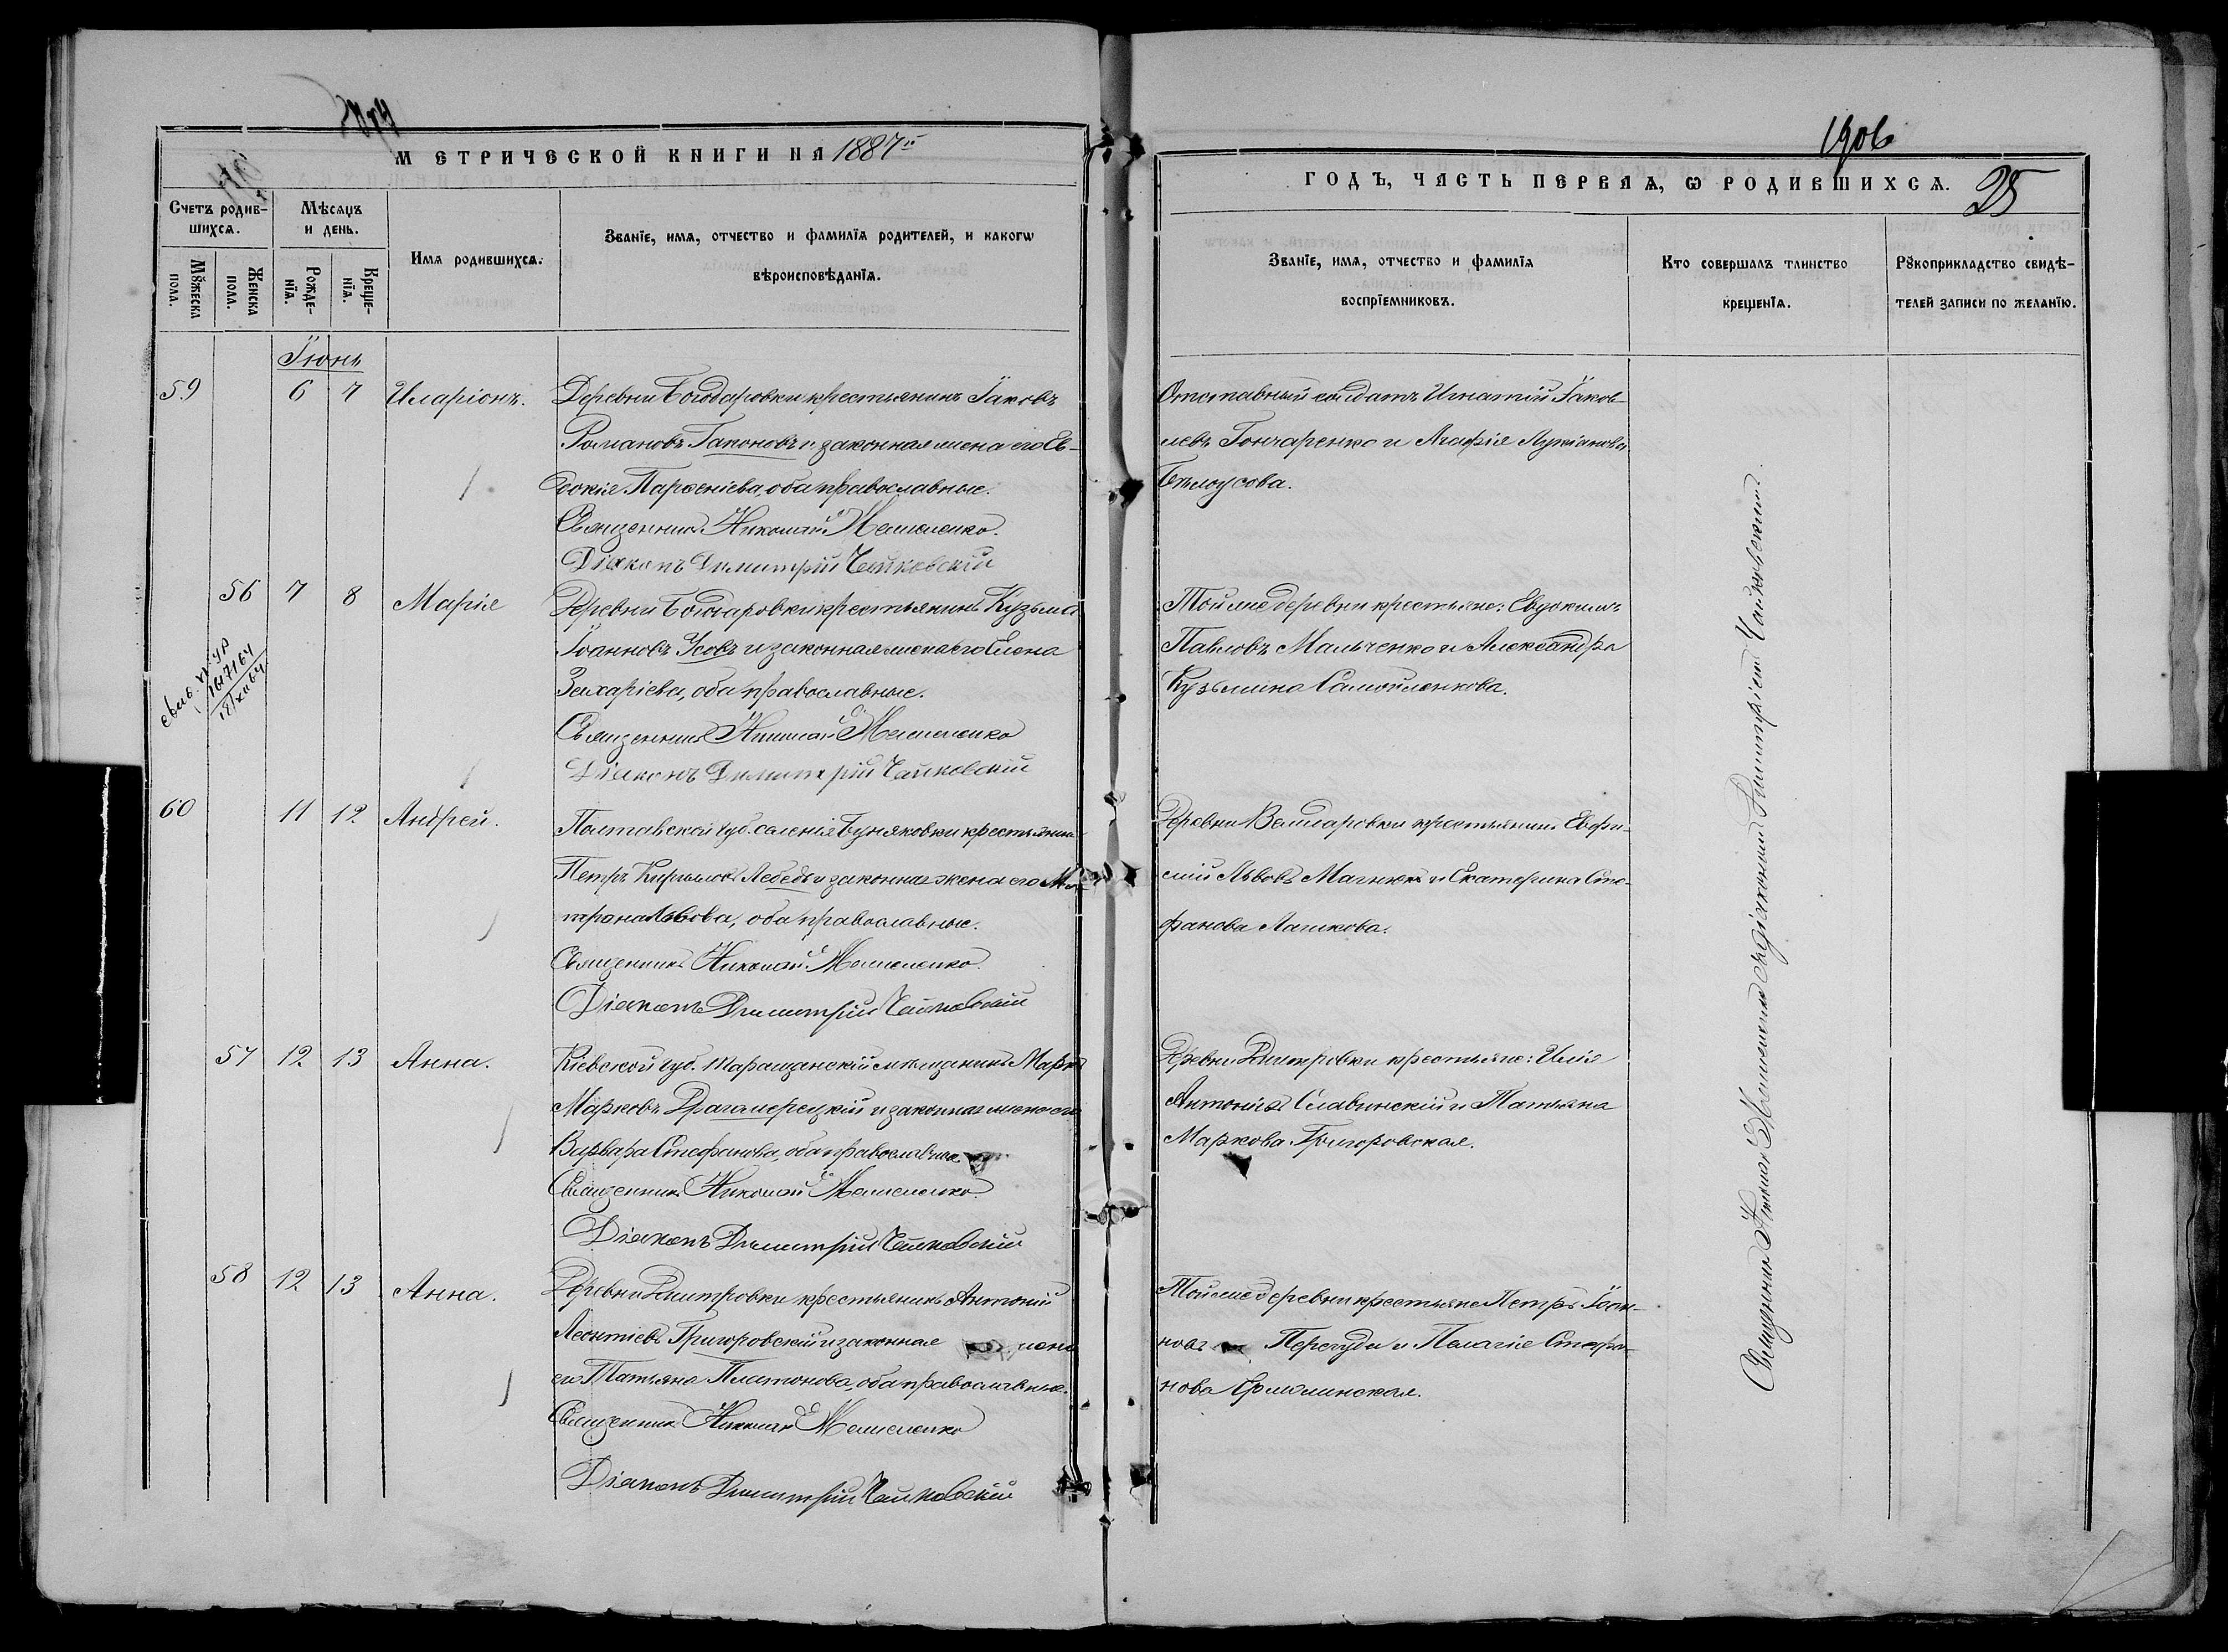 1906
МЕТРИЧЕСКОЙ КНИГИ НА 1887й
ГОДЪ, ЧАСТЬ ПЕРВАЯ, Ѡ РОДИВШИХСѦ. 25
Счетъ родив-
шихсѧ.
Мѣсѧцъ
и день.
Имѧ родившихсѧ.
Званїе, имѧ, отчество и фамилїѧ родителей, и какогѡ
вѣроисповѣданїѧ.
Мꙋжеска
пола.
Женска
пола.
Рожде-
нїѧ.
Креще-
нїѧ.
Званїе, имѧ, отчество и фамилїѧ
воспрїемниковъ.
Кто совершалъ таинство
крещенїѧ.
Рꙋкоприкладство свидѣ-
телей записи по желанїю.
Іюнь
59 6 7 Иларіонъ.
Деревни Богодаровки крестьянинъ Іаковъ
Романовъ Гапоновъ и законная жена его Ев-
докія Парѳеніева, оба православные.
Священникъ Николай
Діаконъ Димитрій Чайковскій
Отставный солдатъ Игнатій Іаков-
левъ Гончаренко и Агафія Лукіанова
Бѣлоусова.
56 7 8 Марія
Деревни Богодаровки крестьянинъ Кузьма
Іоанновъ Усовъ и законная жена его Елена
Захаріева, оба православные.
Священникъ Николай
Діаконъ Димитрій Чайковскій
Той же деревни крестьяне: Евдокимъ
Павловъ Мальченко и Александра
Кузьмина Самойленкова.
60 11 12 Андрей.
Полтавской губ. селенія Буняковки крестьянинъ
Петръ Кирилловъ Лебедь и законная жена его Ма-
трона Львова, оба православные.
Священникъ Николай
Діаконъ Димитрій Чайковскій
Деревни крестьянинъ Евфи-
мій Львовъ и Екатерина Сте-
фанова Лашкова.
57 12 13 Анна.
Кіевской губ. Таращанскій мѣщанинъ Марко
Марковъ и законная жена его
Варвара Стефанова, оба православные.
Священникъ Николай
Діаконъ Димитрій Чайковскій
Деревни Дмитровки крестьяне: Илія
Антоніевъ Славинскій и Татьяна
Маркова Григоровская.
58 12 13 Анна.
Деревни Дмитровки крестьянинъ Антоній
Леонтіевъ Григоровскій и законная жена
его Татьяна Платонова, оба православные.
Священникъ Николай
Діаконъ Димитрій Чайковскій
Той же деревни крестьяне Петръ Іоан-
новъ Перегуда и Пелагія Стефа-
нова
Священникъ Николай съ діакономъ Димитріемъ Чайковскимъ.